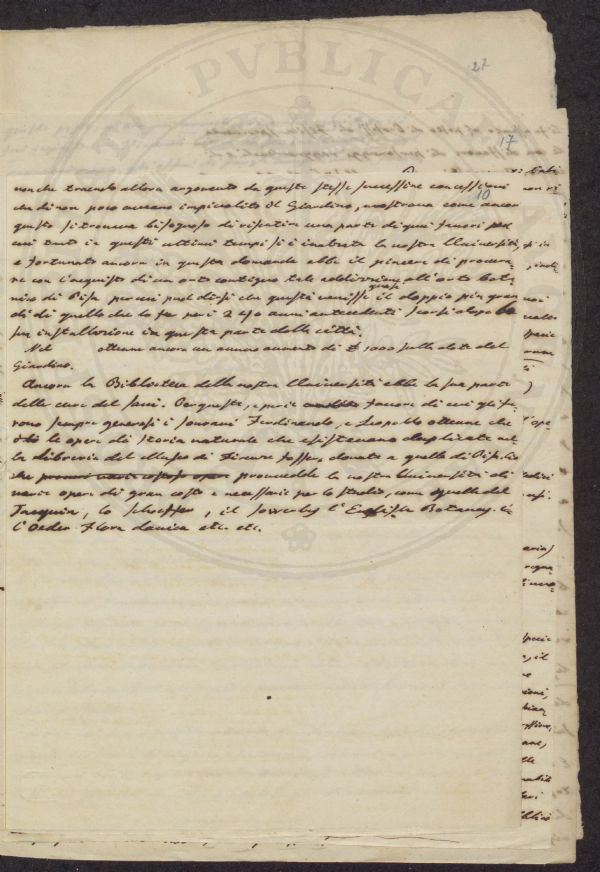 27
17
10
nonche traendo allora argomento da queste stesse successive concessioni
che di non poco avevano impicciolito il Giardino, mostrava come ancor
questo si trovava bisognoso di risentire una parte di quei favori per
cui tanto in questi ultimi tempi si è inalzata la nostra Università
e fortunato ancora in questa domanda ebbe il piacere di procura-
re con l'acquisto di un orto contiguo tale addizione all'orto bota-
nico di Pisa per cui può dirsi che questi venisse quasi il doppio più gran
di di quello che lo fu per i 240 anni antecedenti scorsi dopo la
sua installazione in questa parte della città.
Nel ottenne ancora un annuo aumento di £ 1000 sulla dote del
Giardino.
Ancora la Biblioteca della nostra Università ebbe la sua parte
delle cure del Savi. Per questa, e per il favore di cui gli fu-
rono sempre generosi i Sovrani Ferdinando, e Leopoldo ottenne che
le opere di storia naturale che esistevano duplicate nel
la Libreria del Museo di Firenze fosser donate a quella di Pisa
provvedde la nostra Università di
varie opere di gran costo e necessarie per lo studio, come quelle del
Jacquin, lo Schoeffer, il Sowerby l'English Botany.
l'Oeder Flora danica etc. etc.